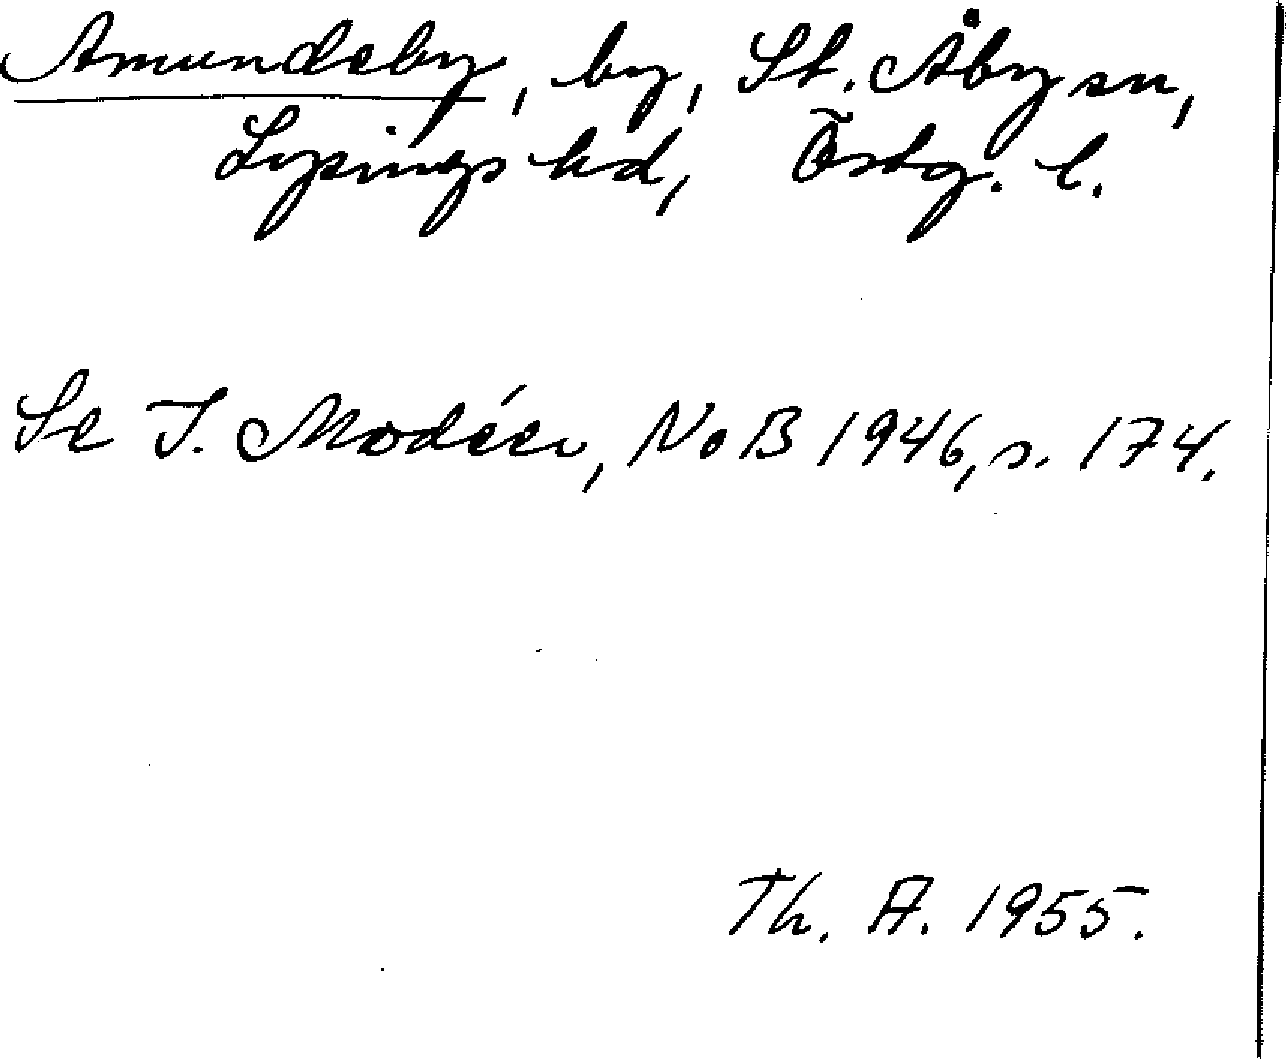 Amundeby, by, St. Åby sn,
Lysings hd, Östg. l.
Se I. Modéer, NoB 1946, s. 174.
Th. A. 1955.